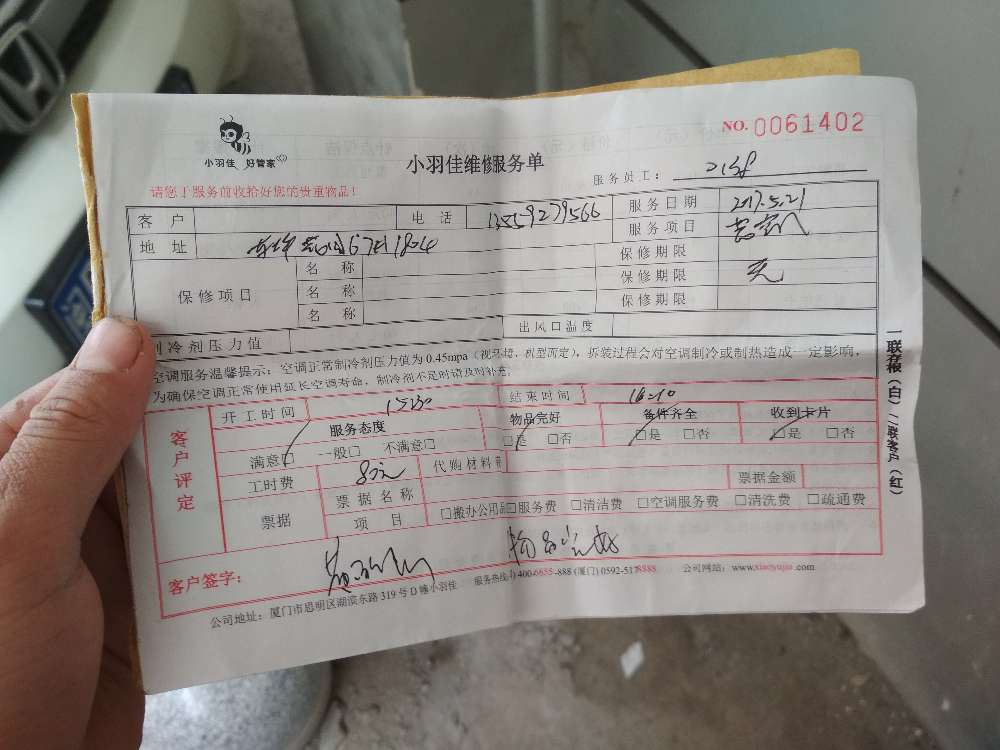 小羽佳 好管家
小羽佳维修服务单
NO. 0061402
请您于服务前收拾好您的贵重物品！
服务员工：
客户 电话 13559279566 服务日期 2017.5.21
地址 服务项目
保修项目 名称 保修期限
名称 保修期限 无
名称 保修期限
制冷剂压力值 出风口温度
空调服务温馨提示：空调正常制冷剂压力值为0.45mpa（视环境、机型而定），拆装过程会对空调制冷或制热造成一定影响，
为确保空调正常使用延长空调寿命，制冷剂不足时请及时补充。
客户评定
开工时间 15:30 结束时间 16:10
服务态度 物品完好 备件齐全 收到卡片
满意□ 一般□ 不满意□ □是 □否 □是 □否 □是 □否
工时费 80元 代购材料
票据 票据名称 票据金额
项目 □搬办公用品□服务费 □清洁费 □空调服务费 □清洗费 □疏通费
客户签字： 物品完好
公司地址：厦门市思明区湖滨东路319号D幢小羽佳 服务热线：400-6655-888 (厦门) 0592-5178888 公司网站：www.xiaoyujia.com
一联存根（白）二联客户（红）